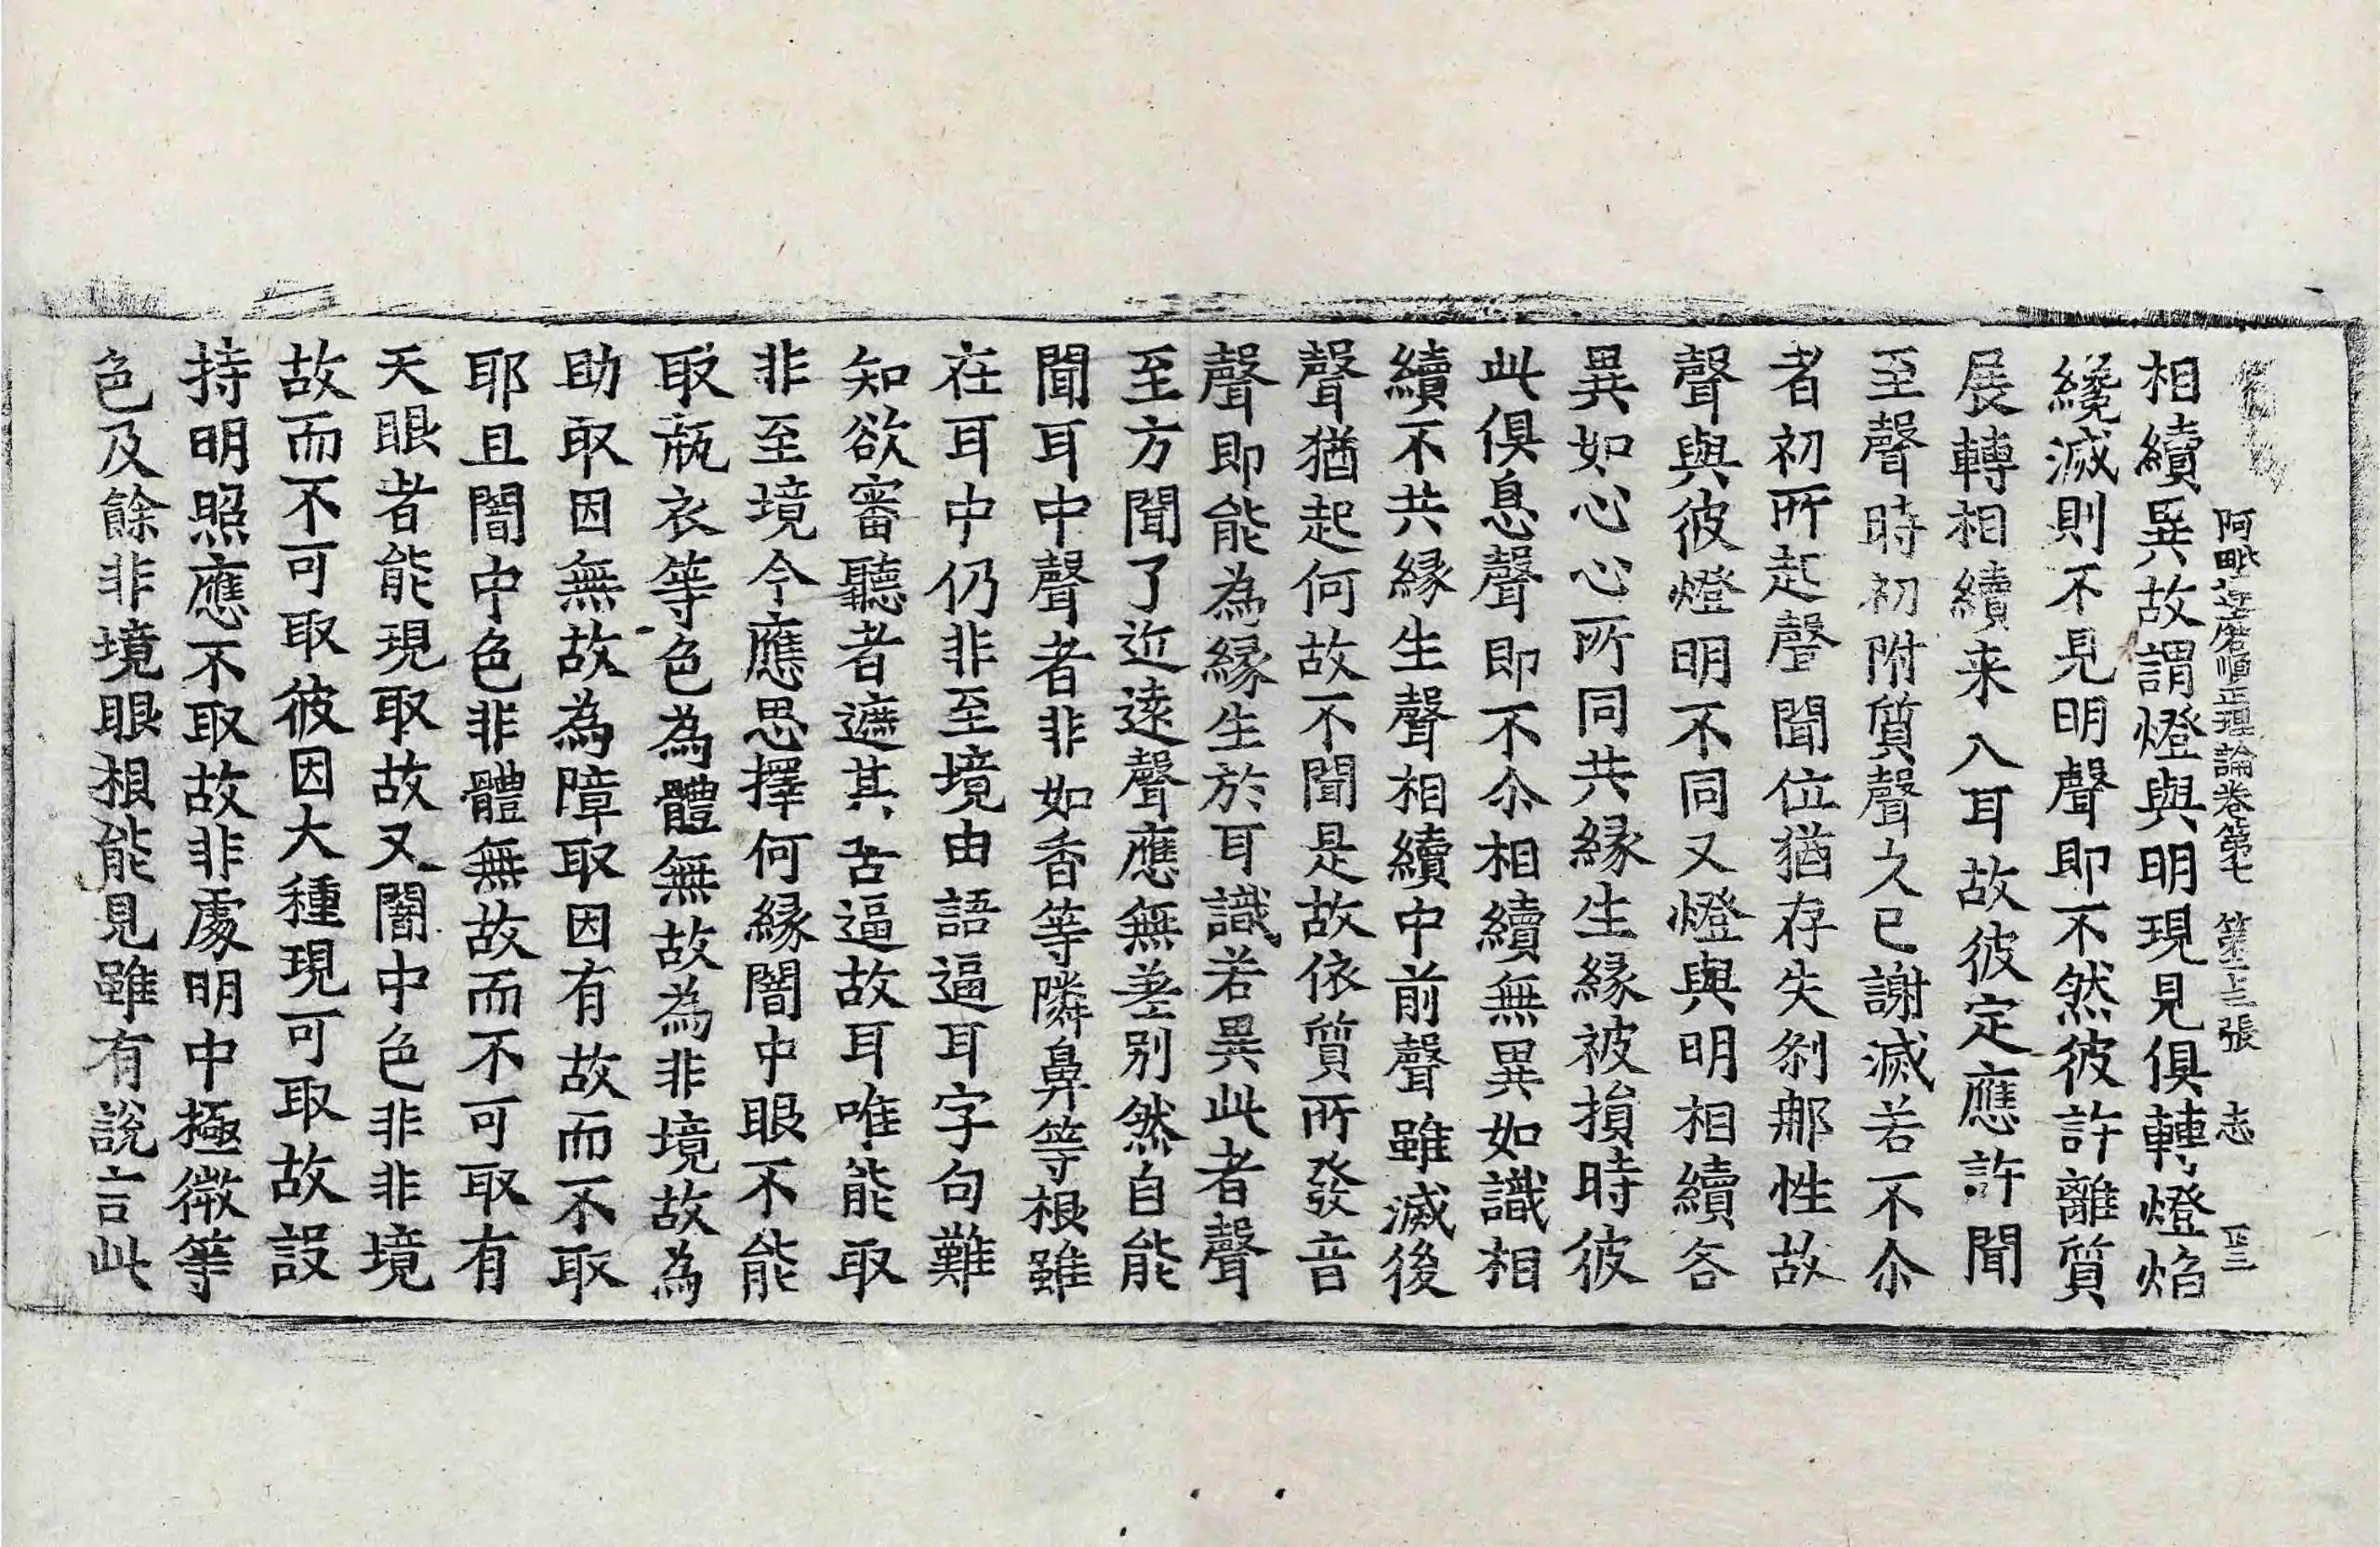 阿毗達磨順正理論卷第七 第十三張 志
相續異故謂燈與明現見俱轉燈焰
纔滅則不見明聲即不然彼許離質
展轉相續来入耳故彼定應許聞
至聲時初附質聲久已謝滅若不尒
者初所起聲聞位猶存失剎那性故
聲與彼燈明不同又燈與明相續各
異如心心所同共緣生緣被損時彼
此俱息聲即不尒相續無異如識相
續不共緣生聲相續中前聲雖滅後
聲猶起何故不聞是故依質所發音
聲即能為緣生於耳識若異此者聲
至方聞了近遠聲應無差別然自能
聞耳中聲者非如香等隣鼻等根雖
在耳中仍非至境由語逼耳字句難
知欲審聽者遮其苦逼故耳唯能取
非至境今應思擇何緣闇中眼不能
取瓶衣等色為體無故為非境故為
助取因無故為障取因有故而不取
耶且闇中色非體無故而不可取有
天眼者能現取故又闇中色非非境
故而不可取彼因大種現可取故設
持明照應不取故非處明中極微等
色及餘非境眼根能見雖有說言此